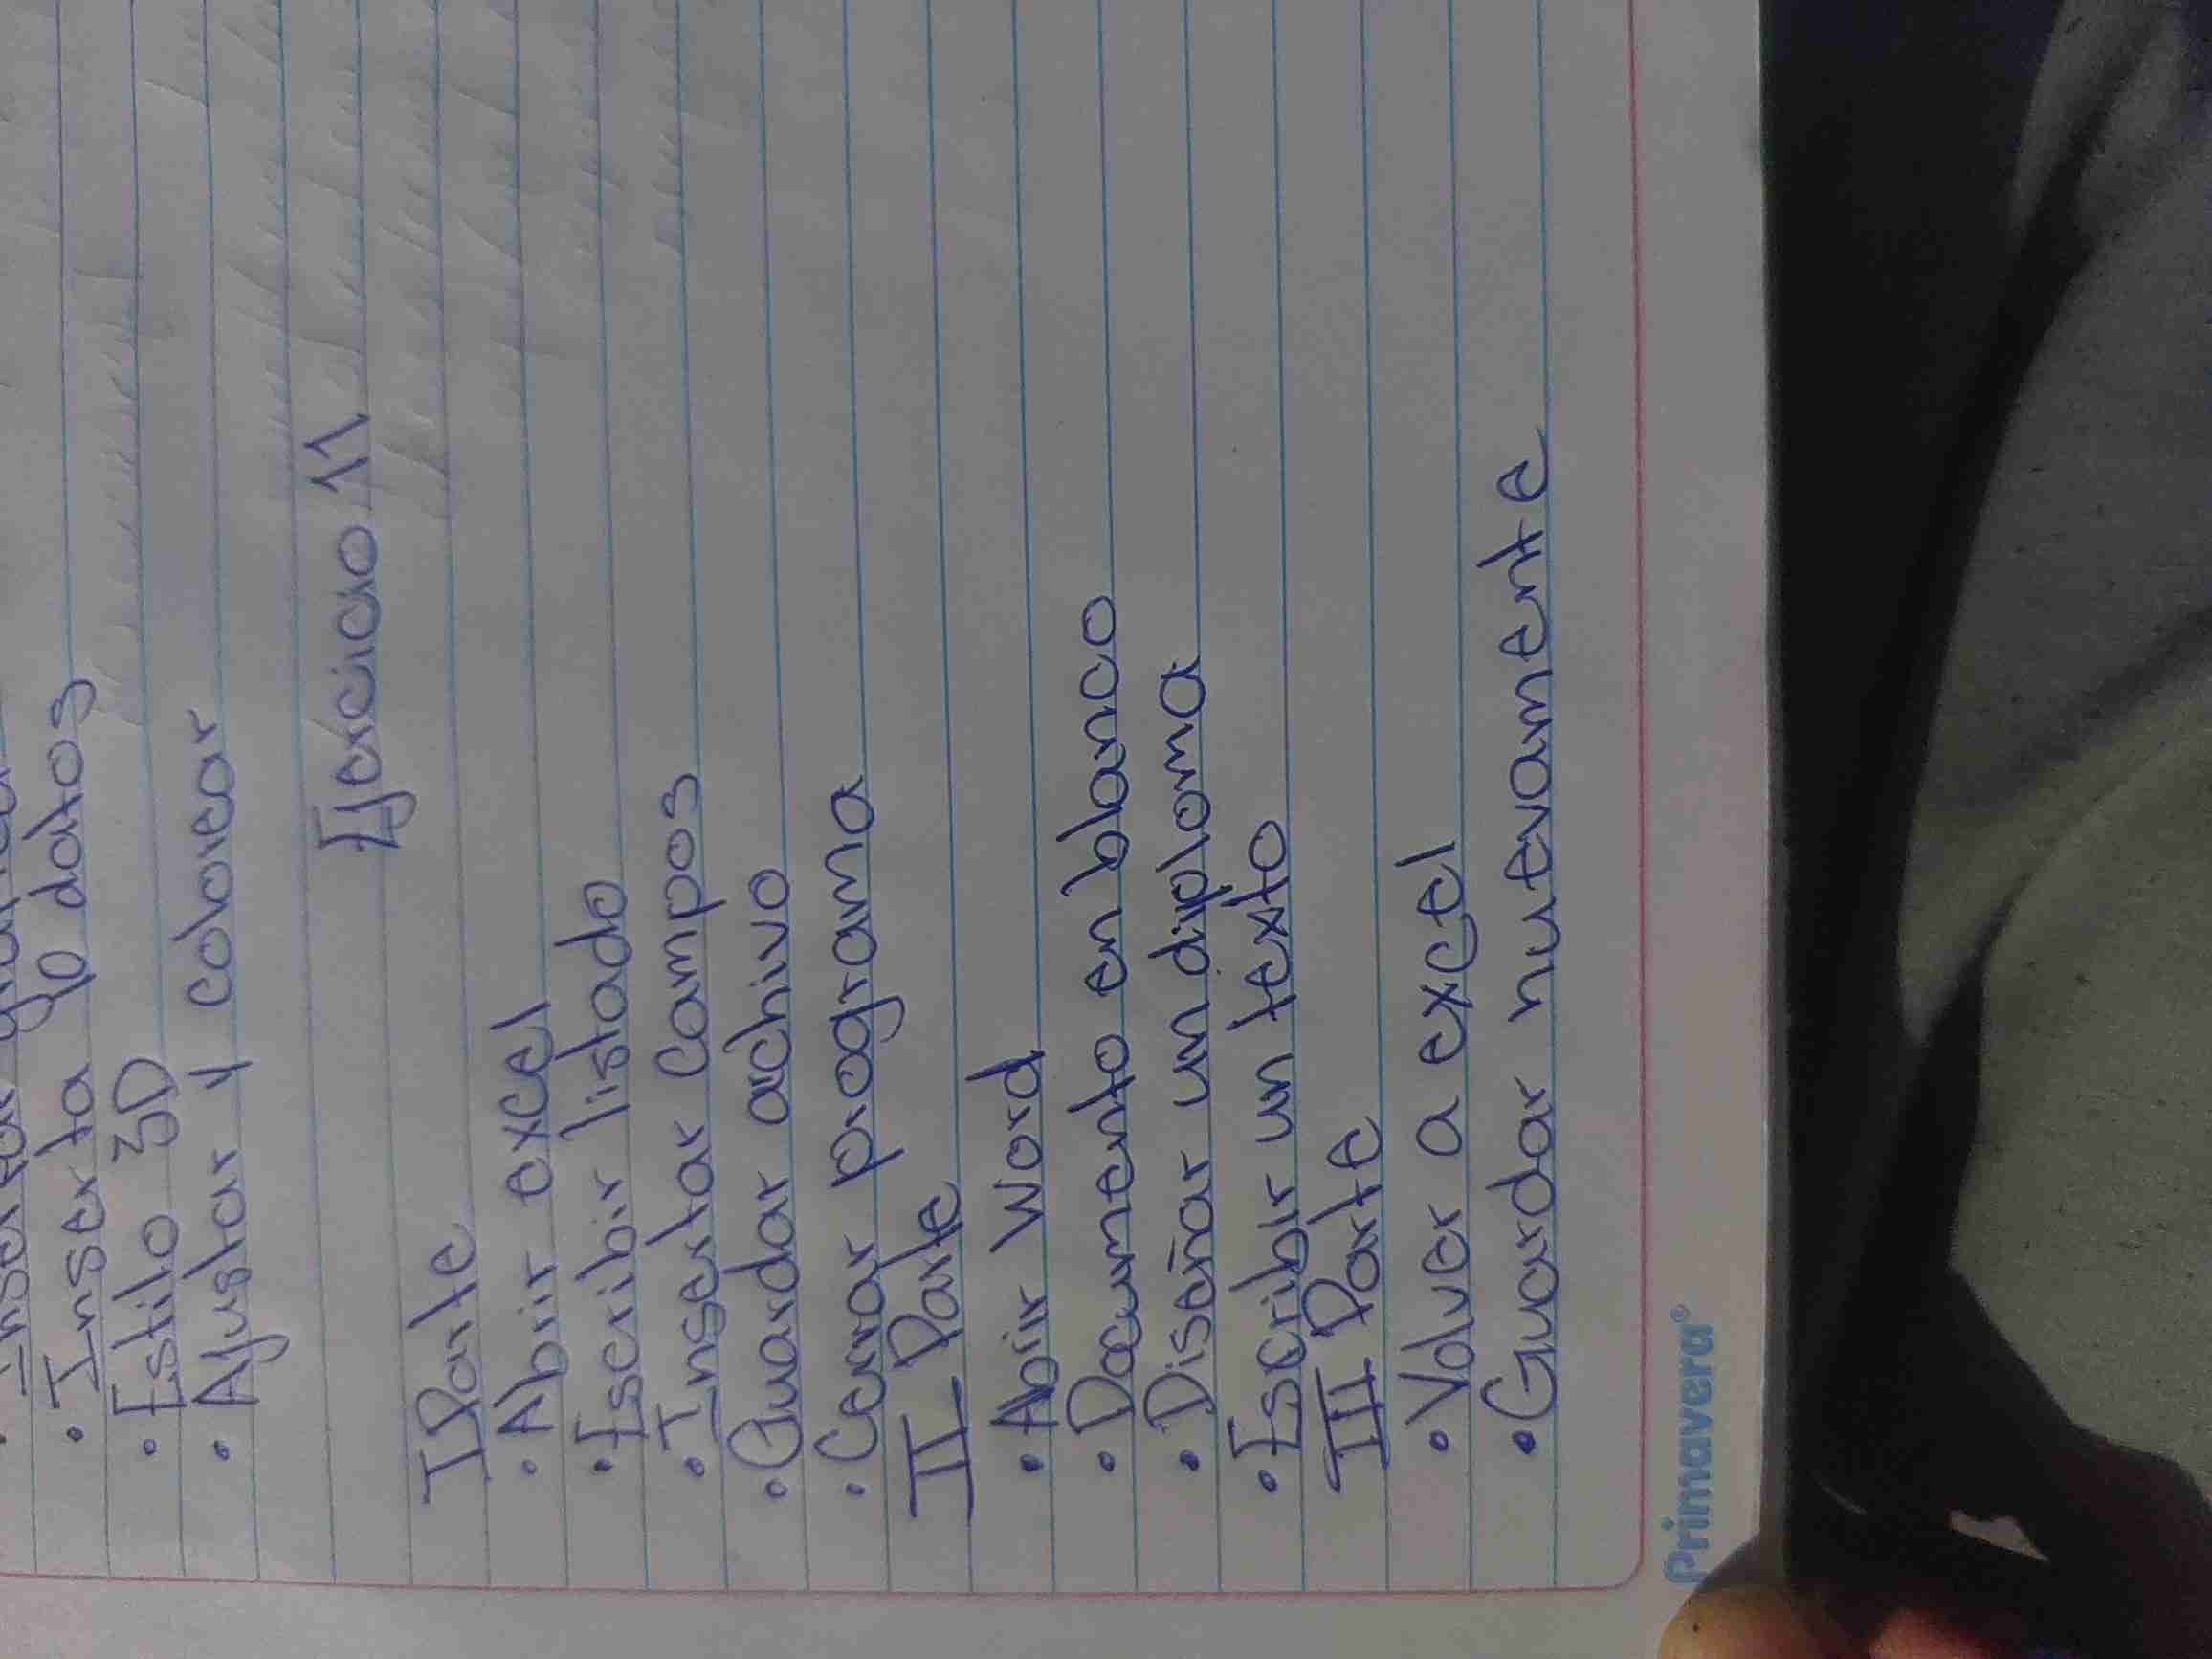 • Insertar
• Inserta 90 datos
• Estilo 3D
• Ajustar y colorear
Ejercicio 11
I Parte
• Abrir excel
• Escribir listado
• Insertar campos
• Guardar archivo
• Cerrar programa
II Parte
• Abrir Word
• Documento en blanco
• Diseñar un diploma
• Escribir un texto
III Parte
• Volver a excel
• Guardar nuevamente
Primavera®